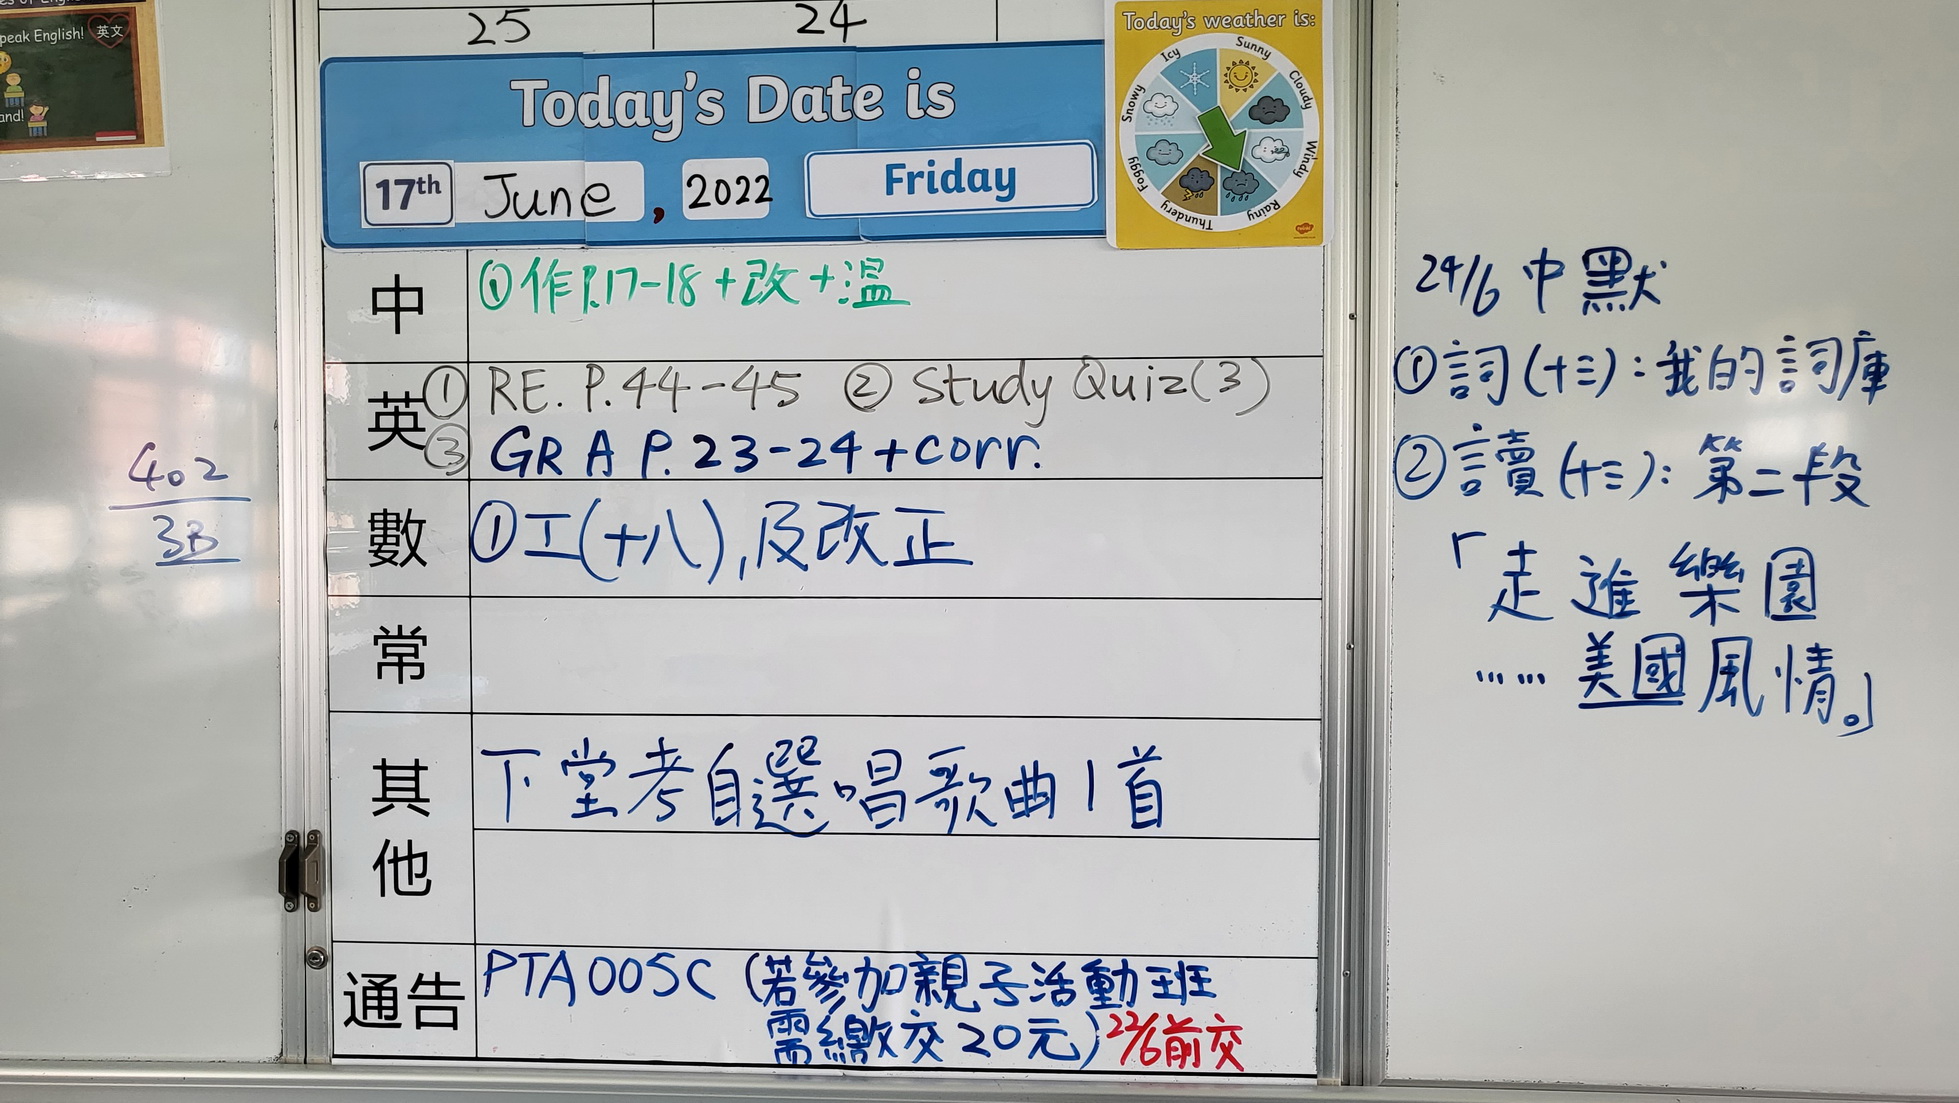 peak English!
英文
and!
25
24
Today's Date is
17th June, 2022 Friday
Today's weather is:
Icy
Sunny
Cloudy
Windy
Rainy
Thundery
Foggy
Snowy
中
①作P.17-18+改+温
英
① RE. P.44-45 ② Study Quiz(3)
③ GR A P. 23-24 + corr.
數
①工(十八),及改正
常
其他
下堂考自選唱歌曲1首
通告
PTA005C (若參加親子活動班
需繳交20元) 22/6前交
402
3B
24/6 中默
①詞(十三):我的詞庫
②讀(十三):第二段
「走進樂園
……美國風情。」